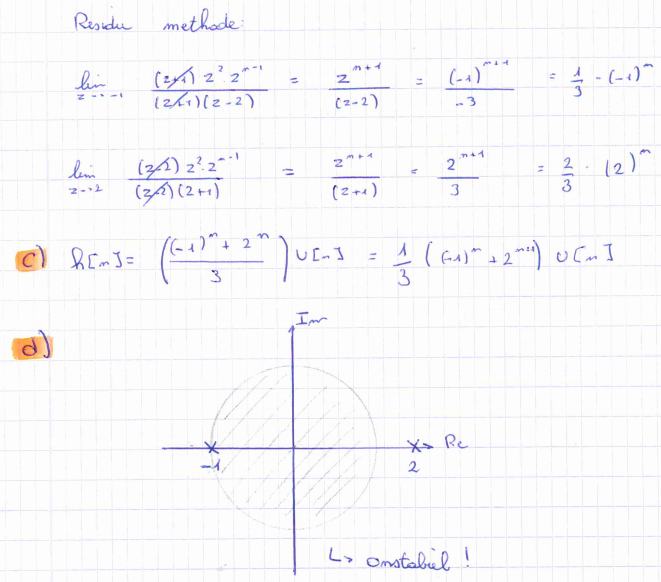 Residu methode:
lim z→-1 (z+1) z² z^(n-1) / (z+1)(z-2) = z^(n+1) / (z-2) = (-1)^(n+1) / -3 = 1/3 · (-1)^n
lim z→2 (z-2) z² · z^(n-1) / (z-2)(z+1) = z^(n+1) / (z+1) = 2^(n+1) / 3 = 2/3 · (2)^n
c) h[n] = (((-1)^n + 2^n) / 3) U[n] = 1/3 ((-1)^n + 2^(n+1)) U[n]
d)
Im
Re
-1
2
↳ onstabiel !